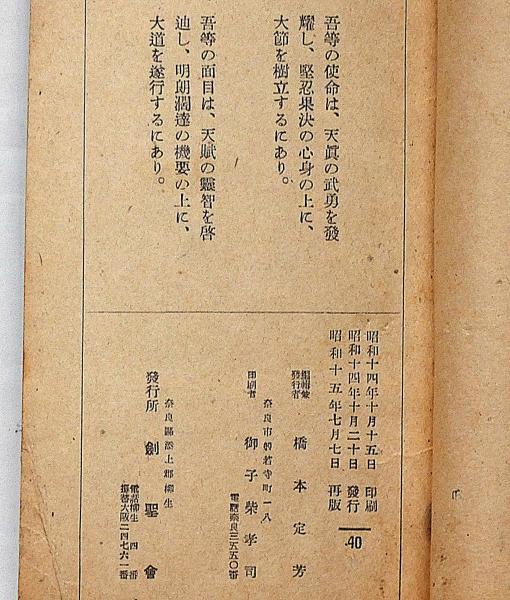 吾等の使命は、天眞の武勇を發
耀し、堅忍果決の心身の上に、
大節を樹立するにあり。
吾等の面目は、天賦の靈智を啓
迪し、明朗濶達の機要の上に、
大道を遂行するにあり。
昭和十四年十月十五日 印刷
昭和十四年十月二十日 發行
昭和十五年七月七日 再版
.40
編輯兼
發行者 橋本定芳
奈良市般若寺町一八
印刷者 御子柴孝司
電話奈良三五五〇番
奈良縣添上郡柳生
發行所 劍聖會
電話柳生 四番
振替大阪二四七六一番